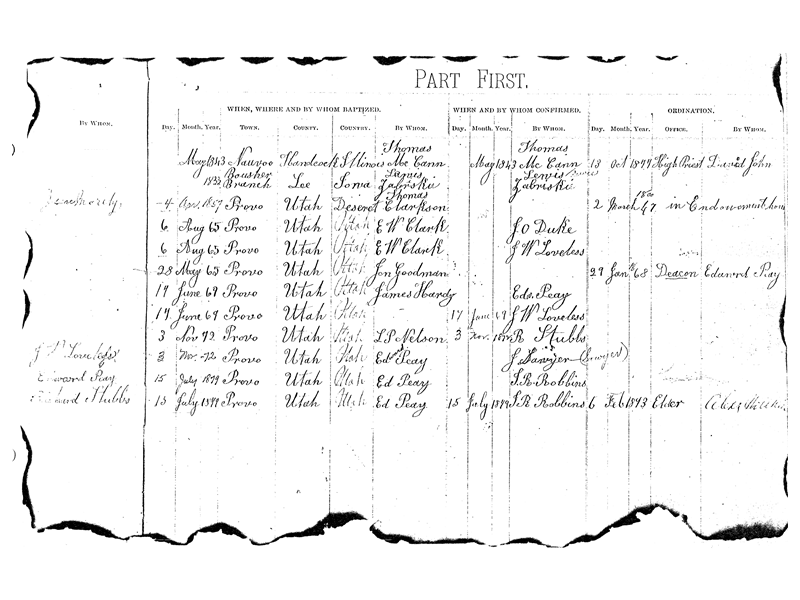 PART FIRST.
WHEN, WHERE AND BY WHOM BAPTIZED. WHEN AND BY WHOM CONFIRMED. ORDINATION.
BY WHOM. Day. Month. Year. TOWN. COUNTY. COUNTRY. BY WHOM. Day. Month. Year. BY WHOM. Day. Month. Year. OFFICE. BY WHOM.
Thomas Thomas
May 1843 Nauvoo Handcock Illinois Mc Cann May 1843 Mc Cann 13 Oct High Priest David John
Lewis Lewis
1832 Branch Lee Iowa Zabriski Zabriski
Thomas
4 Apr. 1857 Provo Utah Deseret Clarkson 2 March 47 in Endowment
6 Aug 65 Provo Utah Utah E W Clark J O Duke
6 Aug 65 Provo Utah Utah E W Clark J W Loveless
28 May 65 Provo Utah Utah Jon Goodman 29 Jan 68 Deacon Edward Peay
June 69 Provo Utah Utah James Hardy Ed. Peay
17 June 69 Provo Utah Utah 17 June 69 J W Loveless
3 Nov 72 Provo Utah Utah L P Nelson 3 Nov. R Stubbs
3 Nov. 72 Provo Utah Utah Ed Peay J Sawyer (Sawyer)
Edward Peay 15 July 1879 Provo Utah Utah Ed Peay S. R. Robbins
Richard Stubbs 15 July Provo Utah Utah Ed Peay 15 July S. R Robbins 6 Feb 1893 Elder